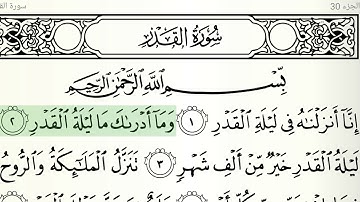 الجزء 30 سورة القد
سُورَةُ الْقَدْرِ
بِسْمِ اللَّهِ الرَّحْمَٰنِ الرَّحِيمِ
إِنَّا أَنْزَلْنَاهُ فِي لَيْلَةِ الْقَدْرِ ١ وَمَا أَدْرَاكَ مَا لَيْلَةُ الْقَدْرِ ٢
لَيْلَةُ الْقَدْرِ خَيْرٌ مِّنْ أَلْفِ شَهْرٍ ٣ تَنَزَّلُ الْمَلَائِكَةُ وَالرُّوحُ